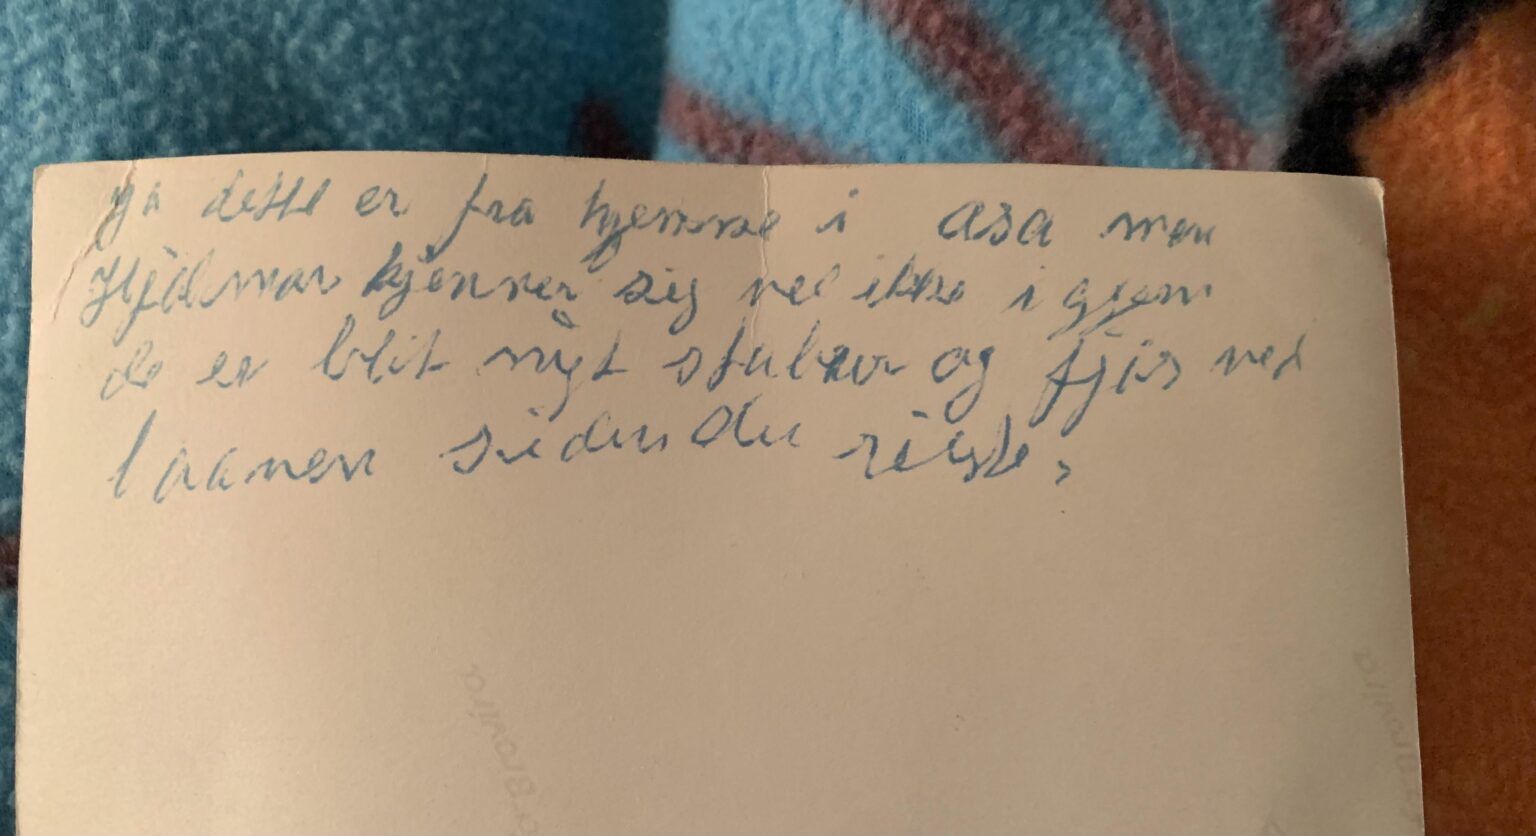 ja dette er fra hjemme i asa men
Hjalmar kjenner sig vel ikke i gjen
de er blit nyt stabur og fjøs ved
laanen siden du reiste,